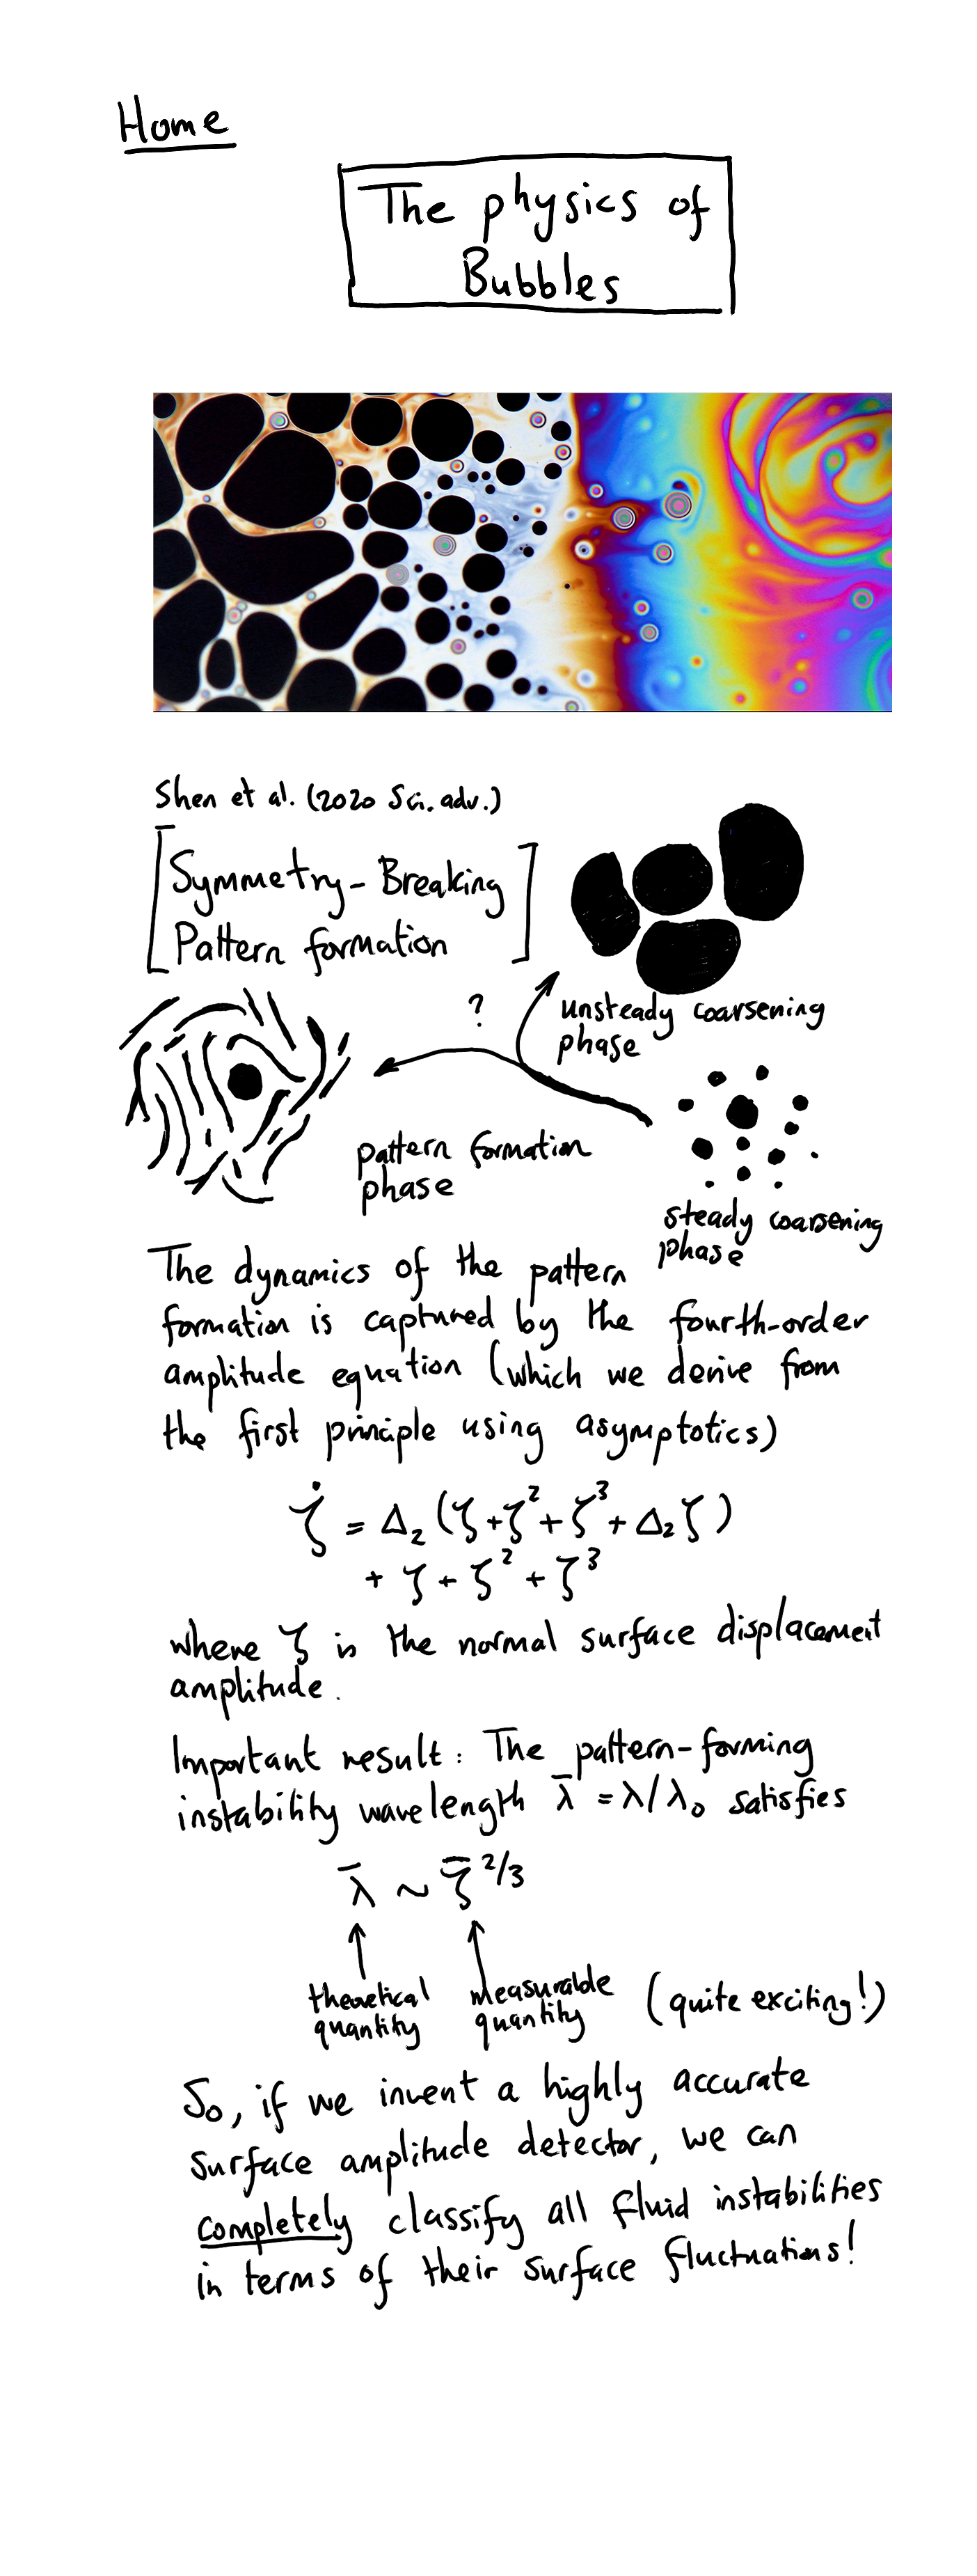 Home
The physics of
Bubbles
Shen et al. (2020 Sci. adv.)
Symmetry-Breaking
Pattern formation
?
unsteady coarsening
phase
pattern formation
phase
steady coarsening
phase
The dynamics of the pattern
formation is captured by the fourth-order
amplitude equation (which we derive from
the first principle using asymptotics)
ζ̇ = Δ₂ (ζ + ζ² + ζ³ + Δ₂ ζ)
+ ζ + ζ² + ζ³
where ζ is the normal surface displacement
amplitude.
Important result: The pattern-forming
instability wavelength λ̄ = λ/λ₀ satisfies
λ̄ ~ ζ̄^2/3
theoretical
quantity
measurable
quantity
(quite exciting!)
So, if we invent a highly accurate
surface amplitude detector, we can
completely classify all fluid instabilities
in terms of their surface fluctuations!